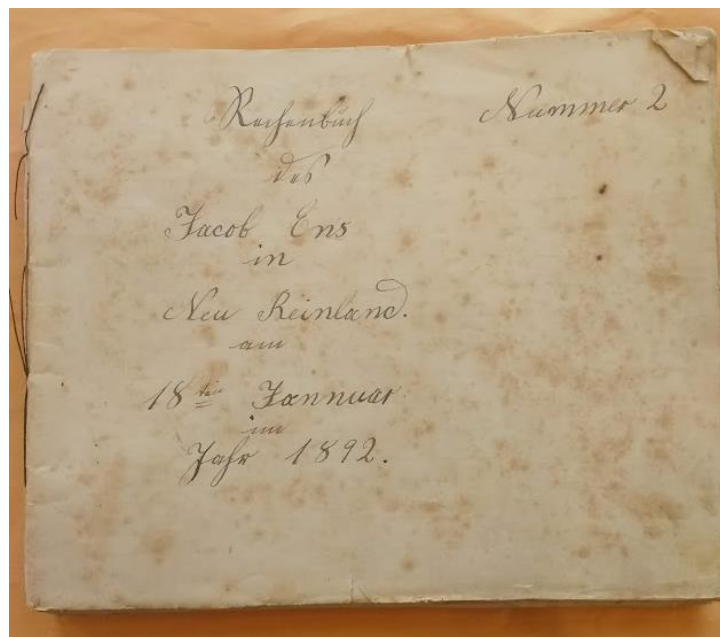 Rechenbuch Nummer 2
des
Jacob Ens
in
Neu Reinland.
am
18ten Jannuar
im
Jahr 1892.